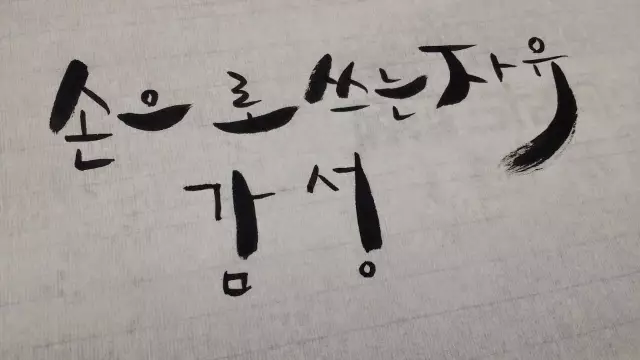 손으로 쓰는 자유
감성